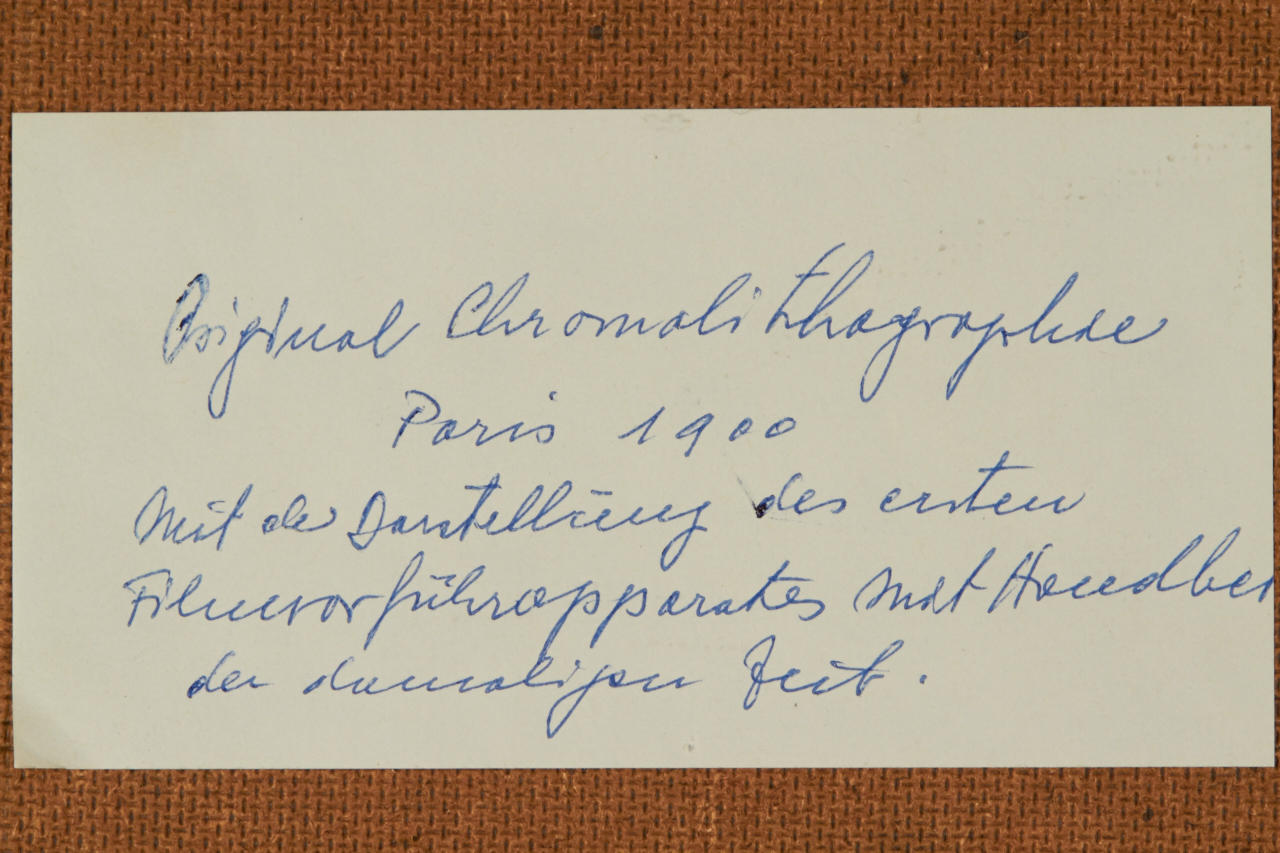 Original Chromolithographie
Paris 1900
Mit der Darstellung des ersten
Filmvorführapparates mit Handbe
der damaligen Zeit.